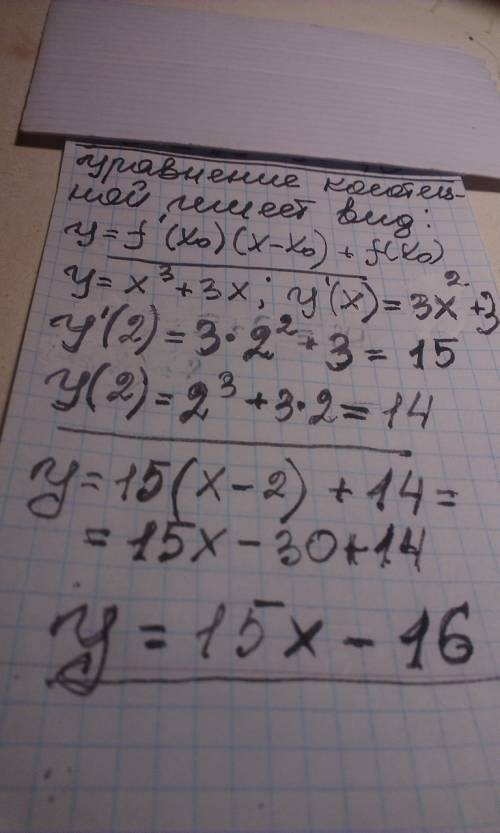 уравнение касатель-
ной имеет вид:
y = f'(x₀)(x-x₀) + f(x₀)
y = x³ + 3x; y'(x) = 3x² + 3
y'(2) = 3·2² + 3 = 15
y(2) = 2³ + 3·2 = 14
y = 15(x - 2) + 14 =
= 15x - 30 + 14
y = 15x - 16